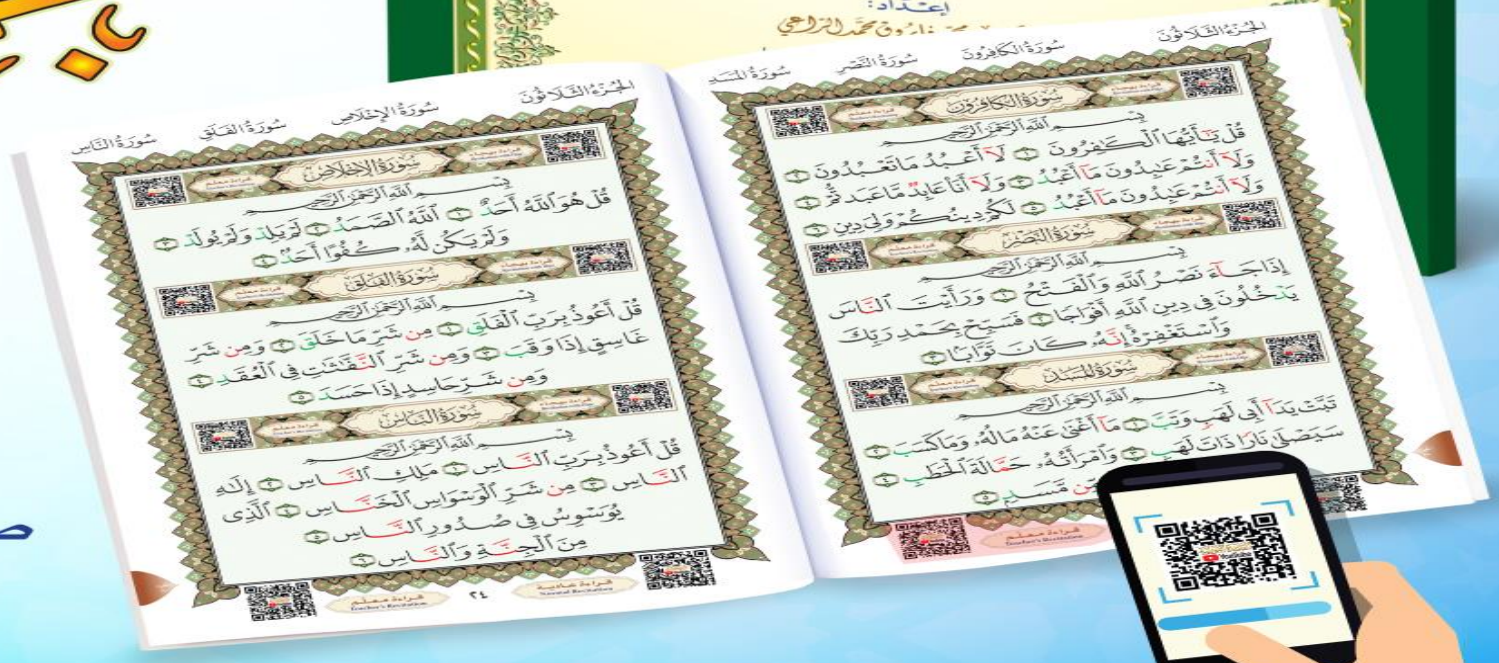 إعداد:
فاروق محمد الراعي
الجُزْءُ الثَّلَاثُونَ سُورَةُ الكَافِرُونَ سُورَةُ النَّصْرِ سُورَةُ المَسَدِ
سُورَةُ الكَافِرُونَ
بِسْمِ ٱللَّهِ ٱلرَّحْمَٰنِ ٱلرَّحِيمِ
قُلْ يَٰٓأَيُّهَا ٱلْكَٰفِرُونَ ١ لَآ أَعْبُدُ مَا تَعْبُدُونَ ٢
وَلَآ أَنتُمْ عَٰبِدُونَ مَآ أَعْبُدُ ٣ وَلَآ أَنَا۠ عَابِدٌ مَّا عَبَدتُّمْ ٤
وَلَآ أَنتُمْ عَٰبِدُونَ مَآ أَعْبُدُ ٥ لَكُمْ دِينُكُمْ وَلِىَ دِينِ ٦
سُورَةُ النَّصْرِ
بِسْمِ ٱللَّهِ ٱلرَّحْمَٰنِ ٱلرَّحِيمِ
إِذَا جَآءَ نَصْرُ ٱللَّهِ وَٱلْفَتْحُ ١ وَرَأَيْتَ ٱلنَّاسَ
يَدْخُلُونَ فِى دِينِ ٱللَّهِ أَفْوَاجًا ٢ فَسَبِّحْ بِحَمْدِ رَبِّكَ
وَٱسْتَغْفِرْهُ إِنَّهُۥ كَانَ تَوَّابًۢا ٣
سُورَةُ المَسَدِ
بِسْمِ ٱللَّهِ ٱلرَّحْمَٰنِ ٱلرَّحِيمِ
تَبَّتْ يَدَآ أَبِى لَهَبٍ وَتَبَّ ١ مَآ أَغْنَىٰ عَنْهُ مَالُهُۥ وَمَا كَسَبَ ٢
سَيَصْلَىٰ نَارًا ذَاتَ لَهَبٍ ٣ وَٱمْرَأَتُهُۥ حَمَّالَةَ ٱلْحَطَبِ ٤
مِّن مَّسَدٍۭ ٥
قراءة معلم
Teacher's Recitation
YouTube
الجُزْءُ الثَّلَاثُونَ سُورَةُ الإِخْلَاصِ سُورَةُ الفَلَقِ سُورَةُ النَّاسِ
سُورَةُ الإِخْلَاصِ
بِسْمِ ٱللَّهِ ٱلرَّحْمَٰنِ ٱلرَّحِيمِ
قُلْ هُوَ ٱللَّهُ أَحَدٌ ١ ٱللَّهُ ٱلصَّمَدُ ٢ لَمْ يَلِدْ وَلَمْ يُولَدْ ٣
وَلَمْ يَكُن لَّهُۥ كُفُوًا أَحَدٌۢ ٤
سُورَةُ الفَلَقِ
بِسْمِ ٱللَّهِ ٱلرَّحْمَٰنِ ٱلرَّحِيمِ
قُلْ أَعُوذُ بِرَبِّ ٱلْفَلَقِ ١ مِن شَرِّ مَا خَلَقَ ٢ وَمِن شَرِّ
غَاسِقٍ إِذَا وَقَبَ ٣ وَمِن شَرِّ ٱلنَّفَّٰثَٰتِ فِى ٱلْعُقَدِ ٤
وَمِن شَرِّ حَاسِدٍ إِذَا حَسَدَ ٥
سُورَةُ النَّاسِ
بِسْمِ ٱللَّهِ ٱلرَّحْمَٰنِ ٱلرَّحِيمِ
قُلْ أَعُوذُ بِرَبِّ ٱلنَّاسِ ١ مَلِكِ ٱلنَّاسِ ٢ إِلَٰهِ
ٱلنَّاسِ ٣ مِن شَرِّ ٱلْوَسْوَاسِ ٱلْخَنَّاسِ ٤ ٱلَّذِى
يُوَسْوِسُ فِى صُدُورِ ٱلنَّاسِ ٥
مِنَ ٱلْجِنَّةِ وَٱلنَّاسِ ٦
قراءة عادية ٢٤ قراءة معلم
Teacher's Recitation